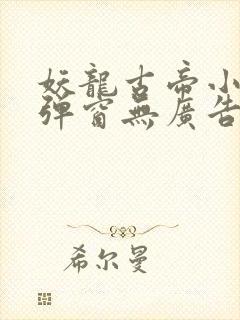 妖龍古帝小
彈窗無廣告
希尔曼